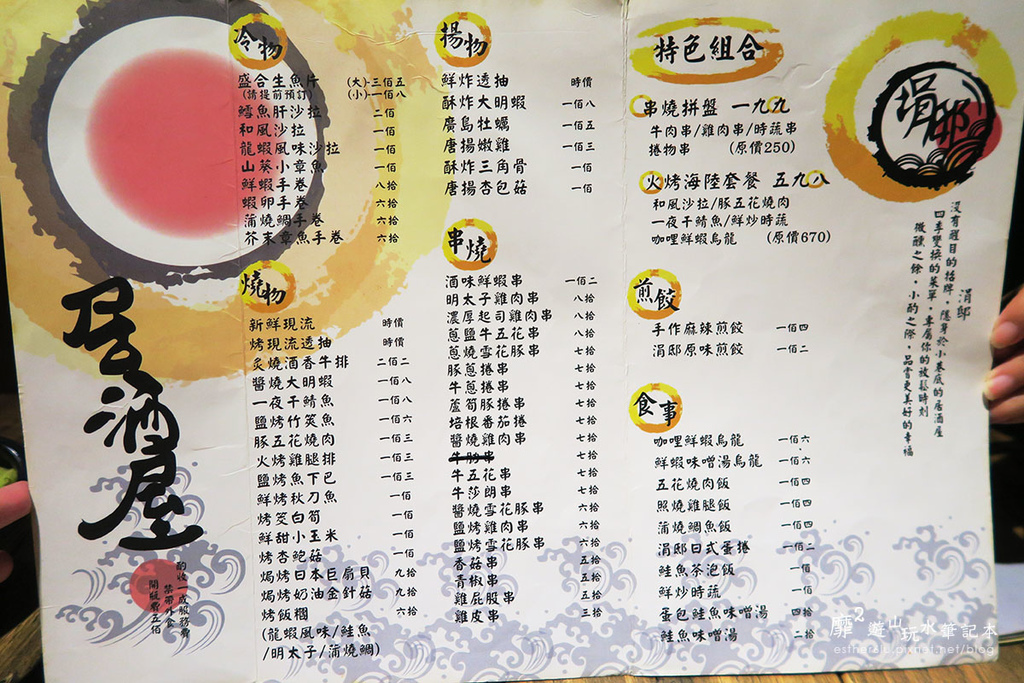 居酒屋
酌收一成服務費
禁帶外食
開瓶費五佰
冷物
盛合生魚片 (大)-三佰五
(請提前預訂) (小)-一佰八
鱈魚肝沙拉 二佰
和風沙拉 一佰
龍蝦風味沙拉 一佰
山葵小章魚 一佰
鮮蝦手卷 八拾
蝦卵手卷 六拾
蒲燒鯛手卷 六拾
芥末章魚手卷 六拾
燒物
新鮮現流 時價
烤現流透抽 時價
炙燒酒香牛排 二佰二
醬燒大明蝦 一佰八
一夜干鯖魚 一佰八
鹽烤竹筴魚 一佰六
豚五花燒肉 一佰三
火烤雞腿排 一佰三
鹽烤魚下巴 一佰三
鮮烤秋刀魚 一佰
烤筊白筍 一佰
鮮甜小玉米 一佰
烤杏鮑菇 一佰
焗烤日本巨扇貝 九拾
焗烤奶油金針菇 九拾
烤飯糰 六拾
(龍蝦風味/鮭魚
/明太子/蒲燒鯛)
揚物
鮮炸透抽 時價
酥炸大明蝦 一佰八
廣島牡蠣 一佰五
唐揚嫩雞 一佰三
酥炸三角骨 一佰
唐揚杏包菇 一佰
串燒
酒味鮮蝦串 一佰二
明太子雞肉串 八拾
濃厚起司雞肉串 八拾
蔥鹽牛五花串 八拾
蔥燒雪花豚串 七拾
豚蔥捲串 七拾
牛蔥捲串 七拾
蘆筍豚捲串 七拾
培根番茄捲 七拾
醬燒雞肉串 七拾
牛肋串 七拾
牛五花串 七拾
牛莎朗串 七拾
醬燒雪花豚串 六拾
鹽烤雞肉串 六拾
鹽烤雪花豚串 六拾
香菇串 五拾
青椒串 五拾
雞屁股串 五拾
雞皮串 三拾
特色組合
串燒拼盤 一九九
牛肉串/雞肉串/時蔬串
捲物串 (原價250)
火烤海陸套餐 五九八
和風沙拉/豚五花燒肉
一夜干鯖魚/鮮炒時蔬
咖哩鮮蝦烏龍 (原價670)
煎餃
手作麻辣煎餃 一佰四
涓邸原味煎餃 一佰二
食事
咖哩鮮蝦烏龍 一佰六
鮮蝦味噌湯烏龍 一佰六
五花燒肉飯 一佰四
照燒雞腿飯 一佰四
蒲燒鯛魚飯 一佰四
涓邸日式蛋捲 一佰二
鮭魚茶泡飯 一佰
鮮炒時蔬 一佰
蛋包鮭魚味噌湯 四拾
鮭魚味噌湯 二拾
涓邸
涓邸
沒有醒目的招牌，隱身於小巷底的居酒屋
四季變換的菜單，專屬你的放鬆時刻
微醺之餘，小酌之際，品嘗更美好的幸福
靡²遊山玩水筆記本
estherslu.pixnet.net/blog